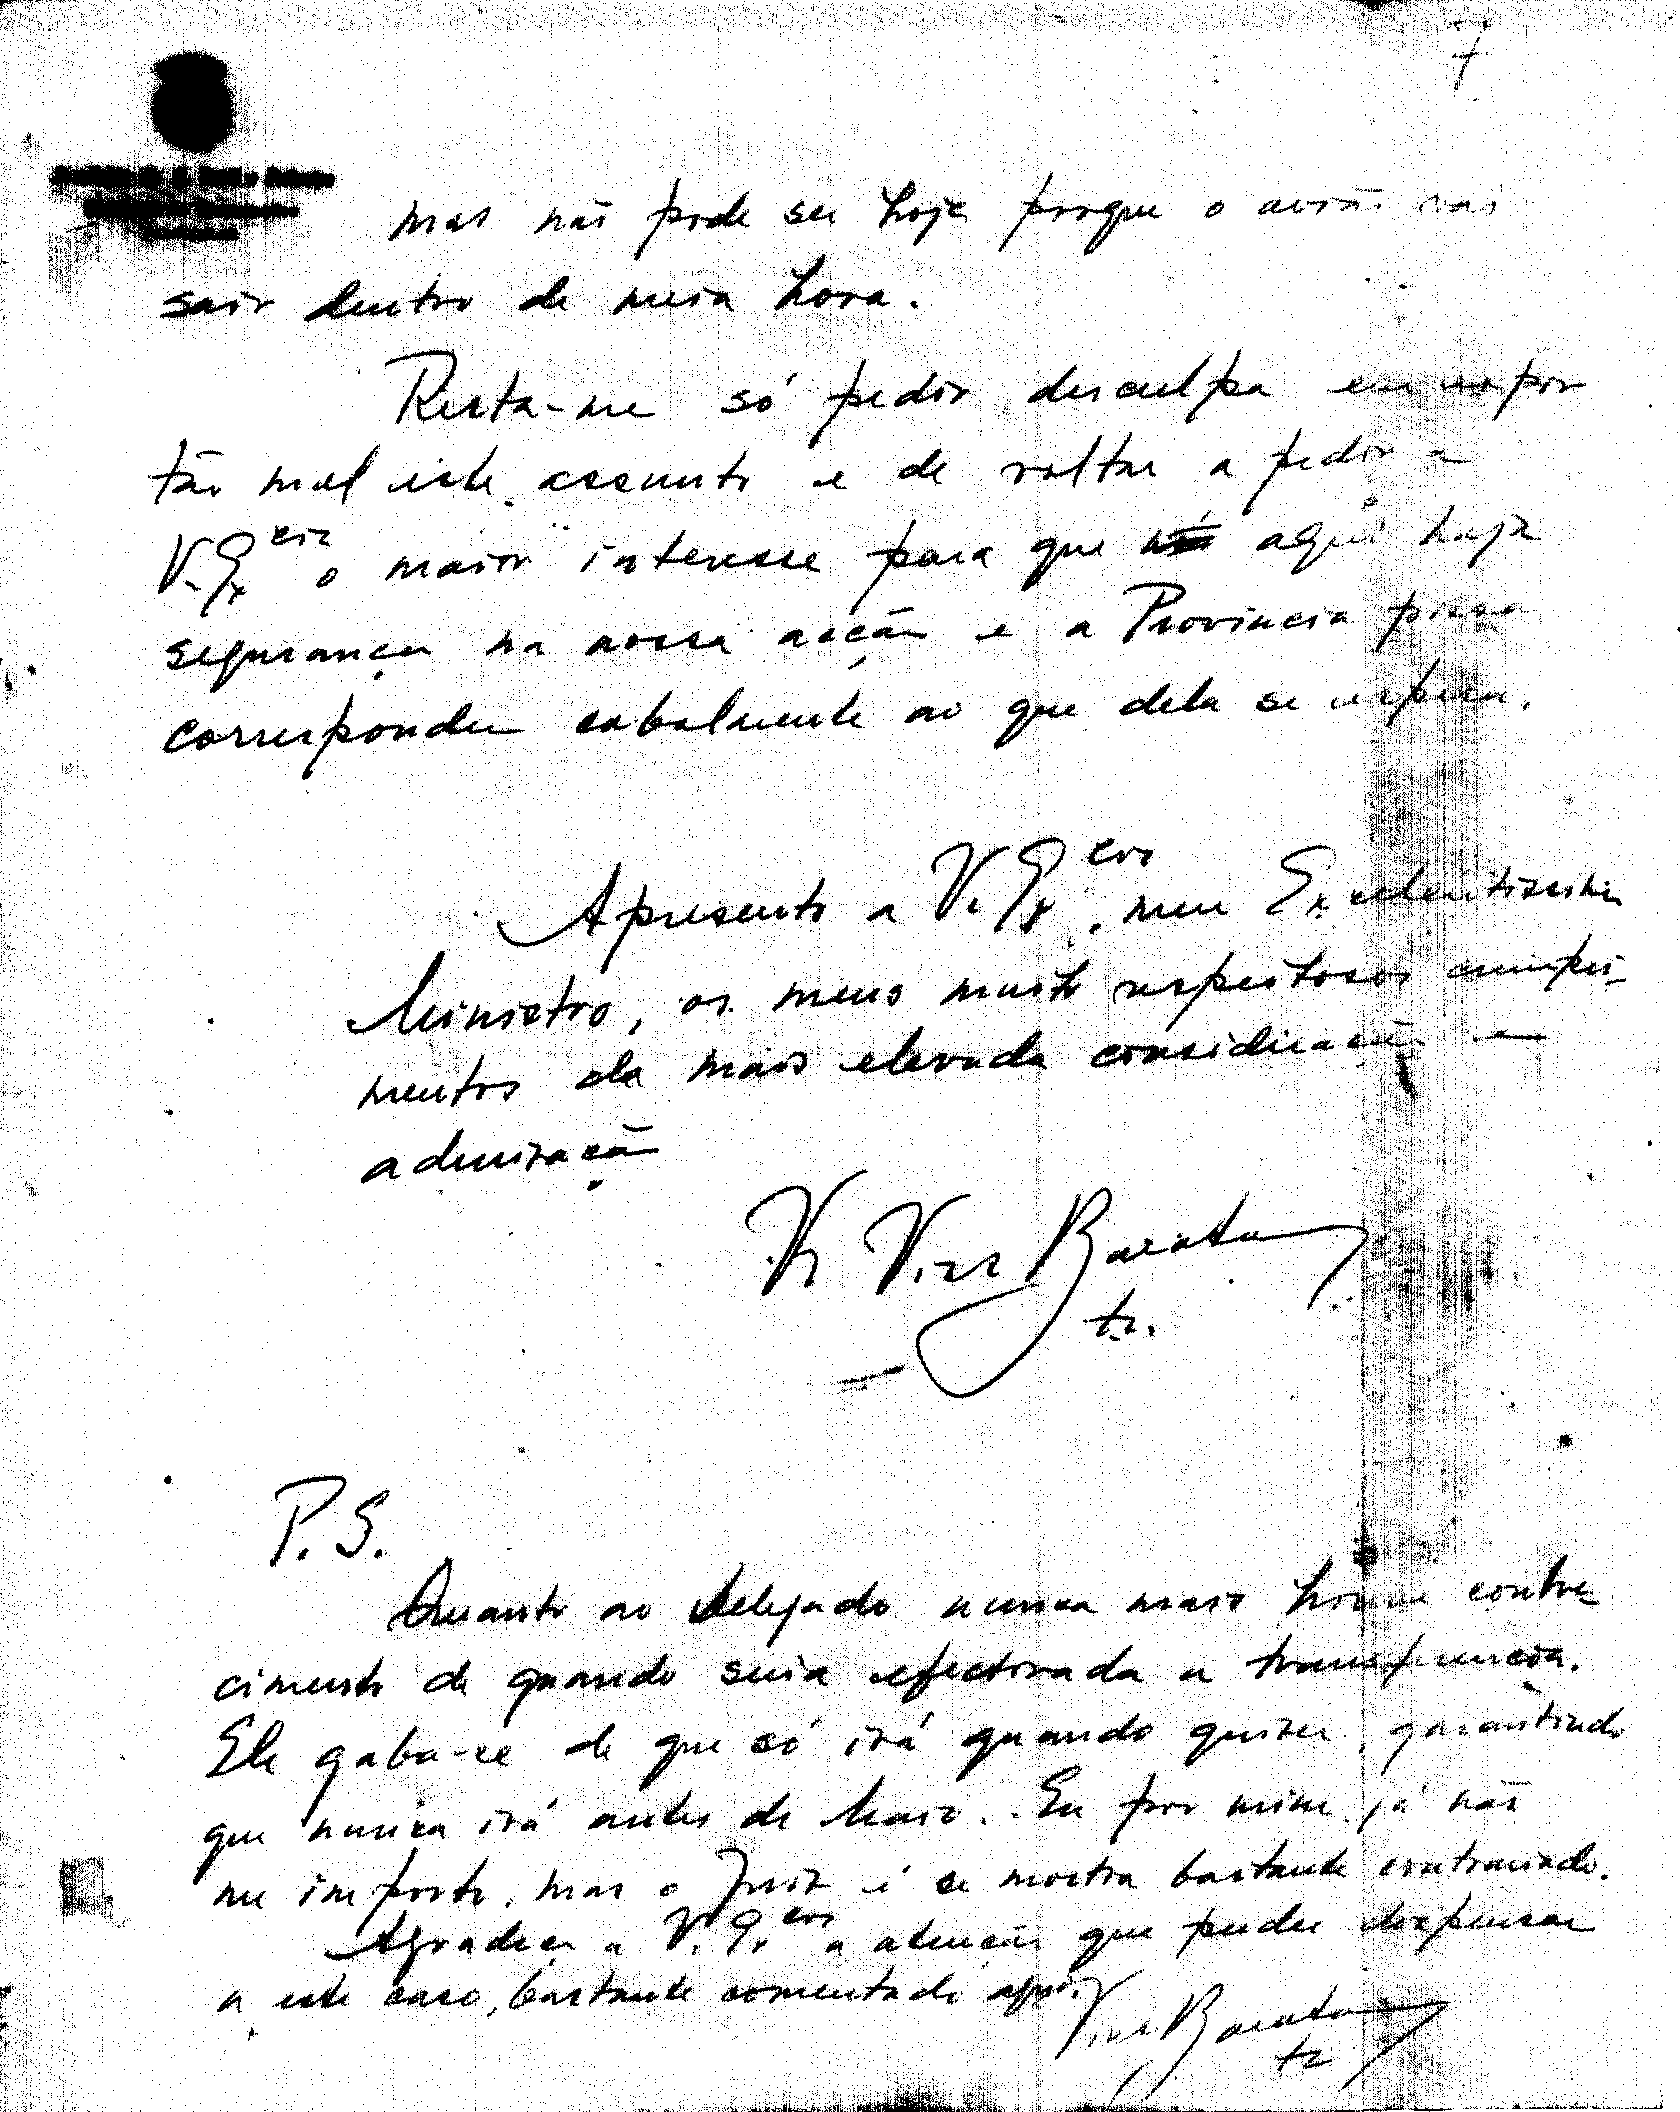 7
mas não pode ser hoje porque o avião vai
sair dentro de meia hora.
Resta-me só pedir desculpa em expor
tão mal este assunto e de voltar a pedir a
V. Ex.cia o maior interesse para que aqui haja
segurança na nossa acção e a Provincia possa
corresponder cabalmente ao que dela se espera.
Apresento a V. Ex.cia, meu Excelentissimo
Ministro, os meus muito respeitosos cumpri-
mentos da mais elevada consideração e
admiração
Vaz Barata
P.S.
Quanto ao Delegado nunca mais houve conhe
cimento de quando seria efectivada a transferencia.
Ele gaba-se de que só irá quando quizer garantindo
que nunca irá antes de Maio. Eu por mim já não
me importo, mas o Juiz é se mostra bastante contrariado.
Agradeço a V. Ex.cia a atenção que puder dispensar
a este caso, bastante comentado aqui.
Barata